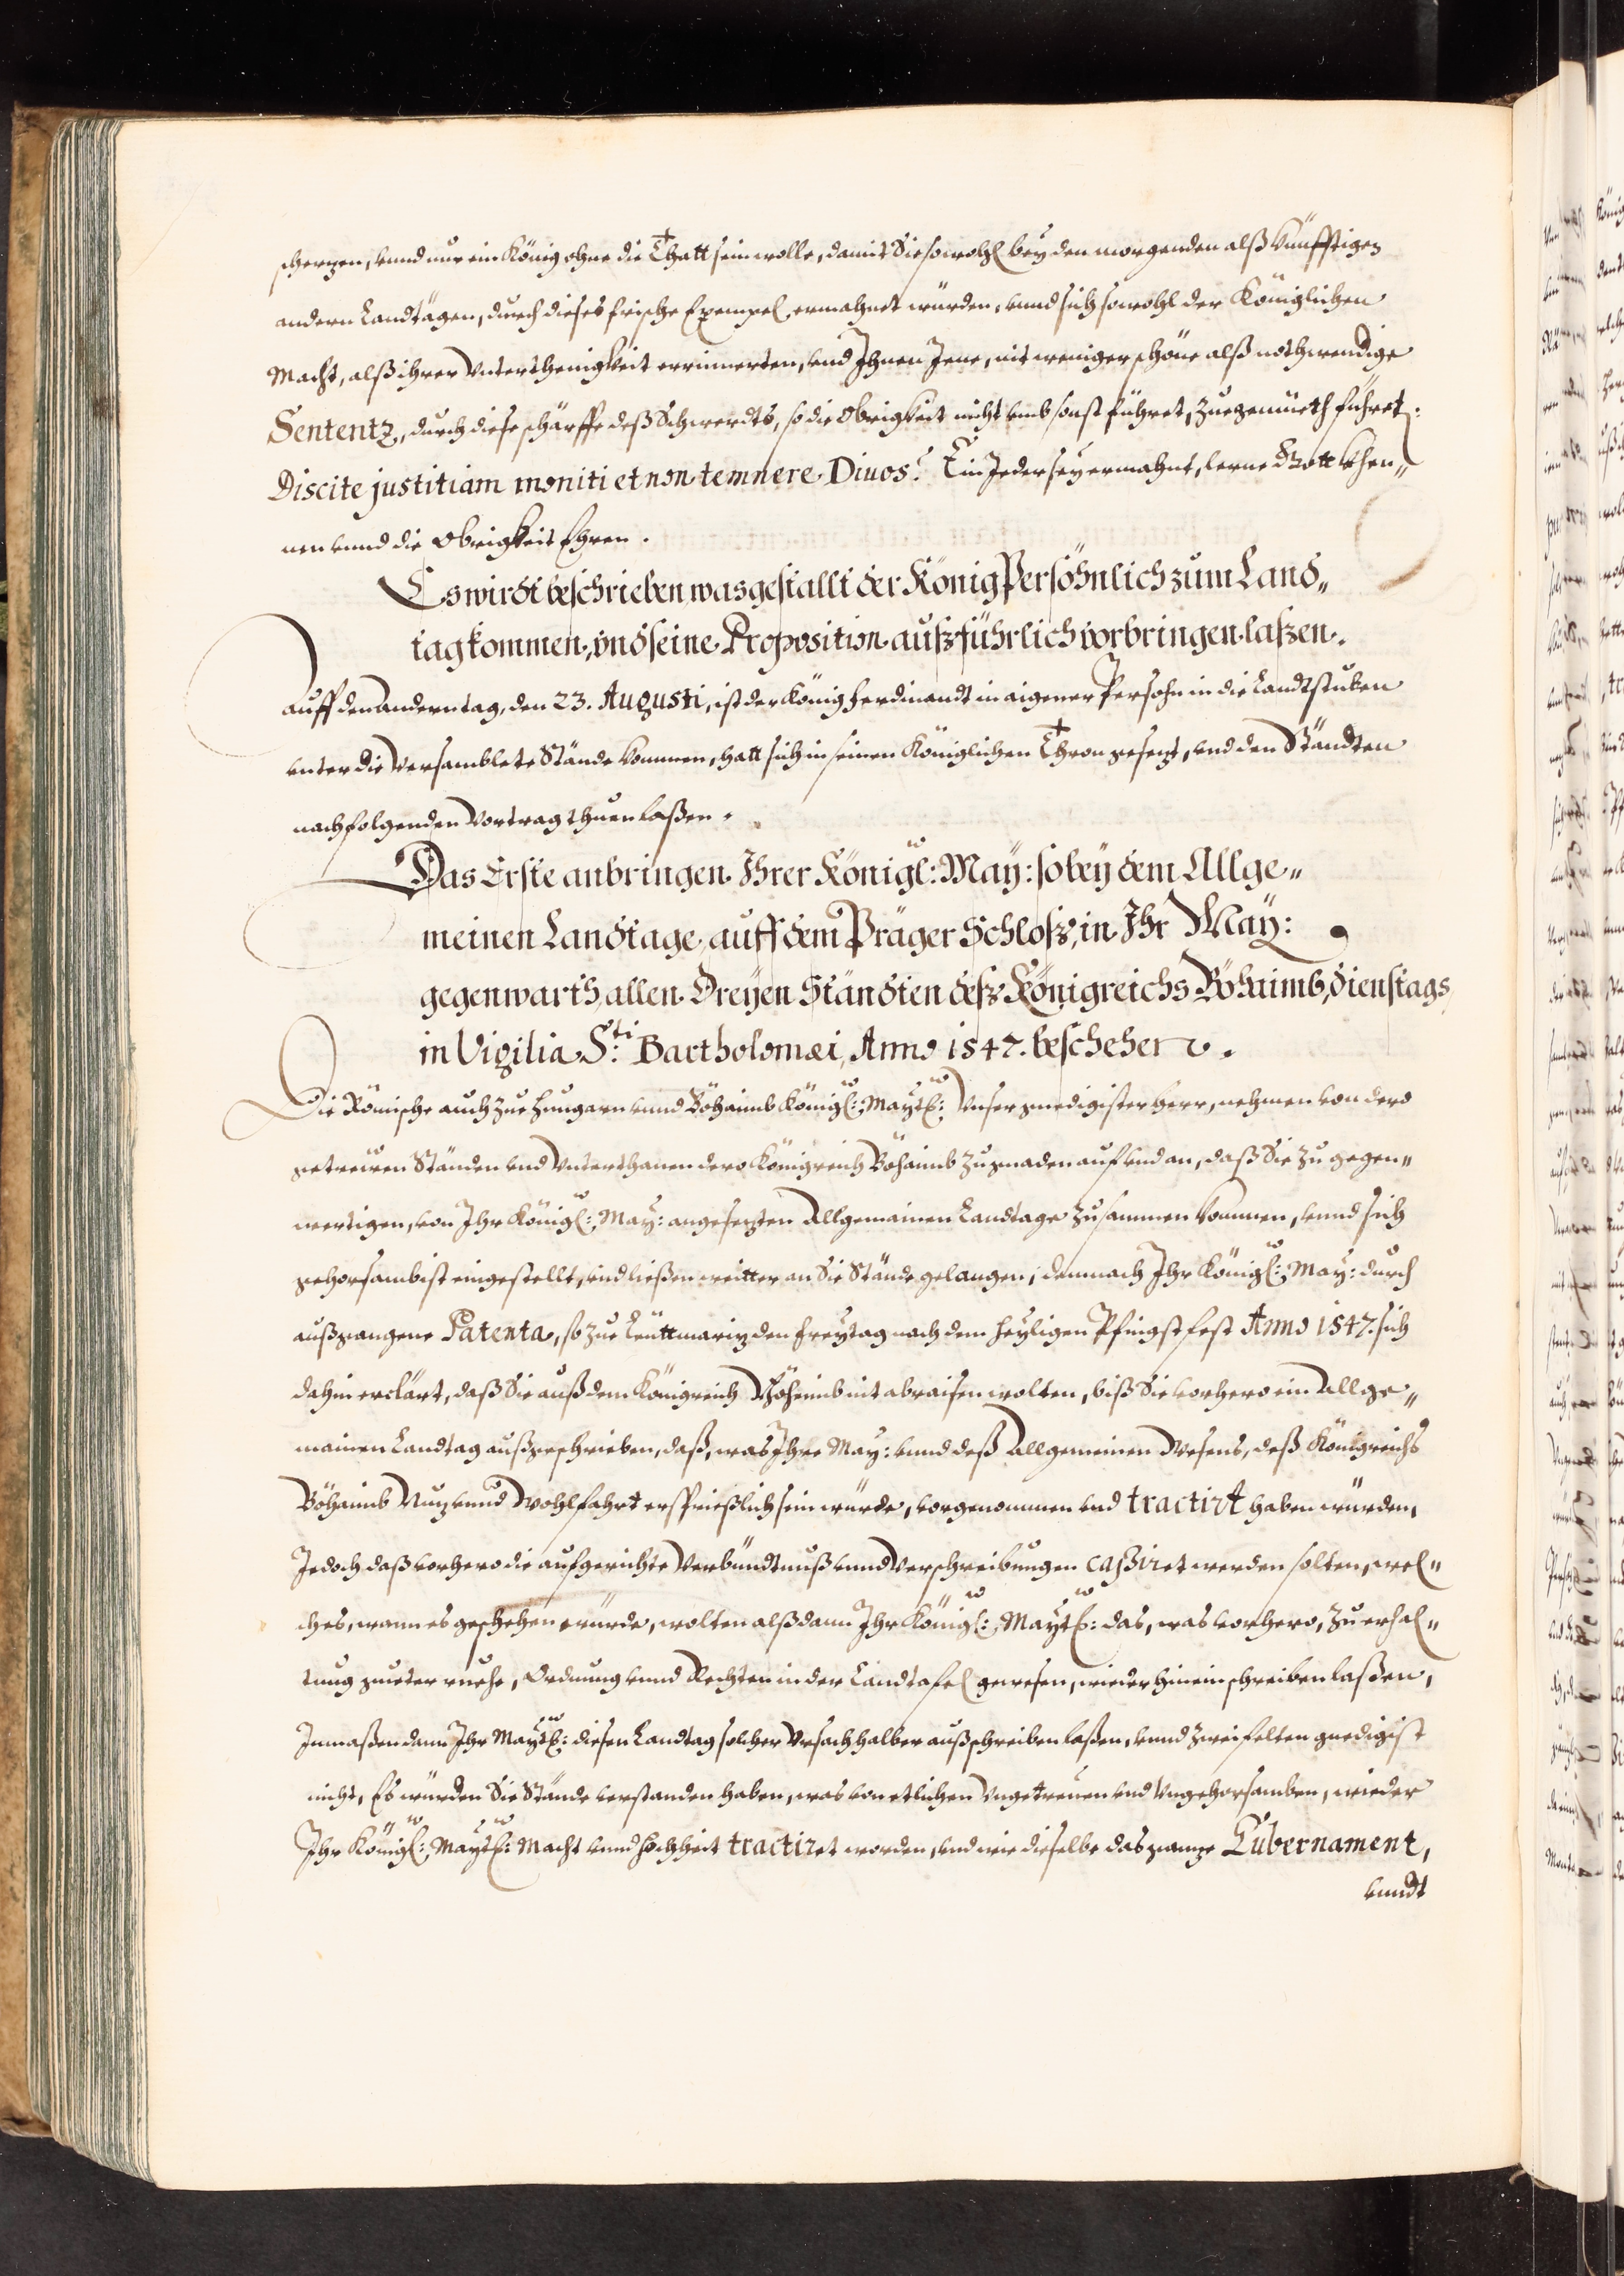 schertzen, vnnd nur ein König ohne die Thatt sein wolle, damit Sie sowohl bey den morgenden alß künfftigen
andern Landtägen, durch dieses frische Exempel ermahnet würden, vnnd sich sowohl der Königlichen
Macht, alß ihrer Vnterthenigkeit errinnerten, vnd Ihnen Jene, nit weniger schöne alß nothwendige
Sententz, durch diese schärffe deß Schwerdts, so die Obrigkeit nicht vmbsonst führet, zuegemüeth führet:
Discite justitiam moniti et non temnere Diuos. Ein Jeder sey ermahnt, lerne Gott khen„
nen vnnd die Obrigkeit Ehren.
Es wirdt beschrieben, was gestallt der König Persöhnlich zum Land„
tag kommen, vnd seine Proposition außführlich vorbringen laßen.
Auff den Andern tag, den 23. Augusti, ist der König Ferdinandt in aigener Persohn in die Landtstuben
vnter die Versamblete Stände kommen, hatt sich in seinen Königlichen Thron gesetzt, vnd den Ständten
nachfolgenden Vortrag thuen laßen.
Das Erste anbringen Ihrer Königl: May: so bey dem Allge„
meinen Landtage auff dem Präger Schloß, in Ihr May:
gegenwarth, allen Dreyen Ständten deß Königreichs Böhaimb, dienstags
in Vigilia S:ti Bartholomæi, Anno 1547. beschehen.
Die Römische auch zue Hungarn vnnd Böhaimb Königl: Maytt: Vnser gnedigister herr, nehmen von dero
getreüen Ständen vnd Vnterthanen dero Königreich Böhaimb zu gnaden auf vnd an, daß Sie zu gegen„
wertigen, von Ihr Königl: May: angesetzten Allgemainen Landtage zusammen kommen, vnnd sich
gehorsambist eingestellt, vnd ließen weitter an Sie Stände gelangen; demnach Ihr Königl: May: durch
außgangene Patenta, so zue Leüttmaritz den Freytag nach dem heyligen Pfingstfest Anno 1547. sich
dahin erclärt, daß Sie auß dem Königreich Böheimb nit abraisen wolten, biß Sie vorhero ein Allge„
mainen Landtag außgeschrieben, daß, was Ihr May: vnnd deß Allgemeinen Wesens, deß Königreichs
Böhaimb Nutz vnnd Wohlfahrt ersprießlich sein würde, vorgenommen vnd tractirt haben würden,
Jedoch daß vorhero die aufgerichte Verbündtnuß vnnd Verschreibungen caßiret werden solten, wel„
ches, wann es geschehen würde, wolten alßdann Ihr Königl: Maytt: das, was vorhero, zu erhal„
tung gueter ruehe, Ordnung vnnd Rechten in der Landtafel gewesen, wieder hinein schreiben laßen,
Inmaßen dann Ihr Maytt: diesen Landtag solcher Vrsach halber außschreiben laßen, vnnd zweifelten gnedigist
nicht, Es würden Sie Stände verstanden haben, was von etlichen Vngetreuen vnd Vngehorsamben, wieder
Ihr Königl: Maytt: Macht vnnd hochheit tractiret worden, vnd wie dieselbe das gantze Gubernament,
vnndt